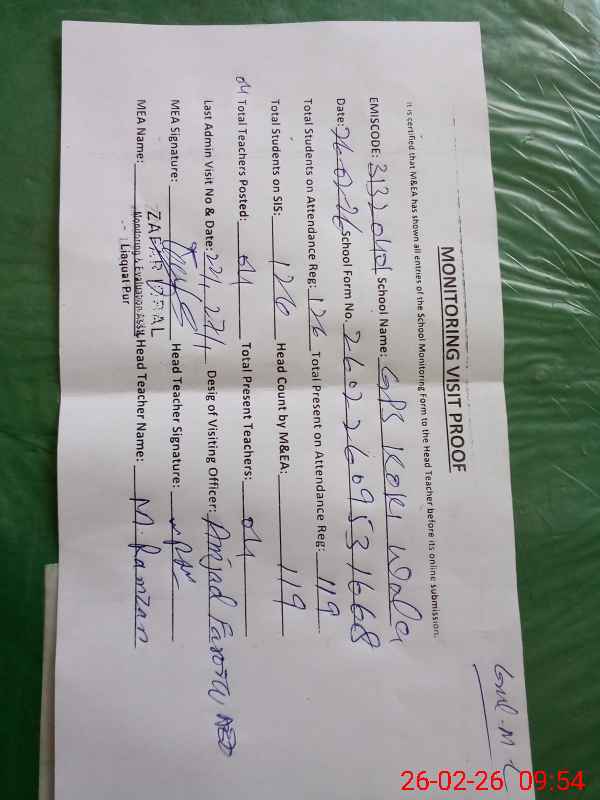 MONITORING VISIT PROOF
It is certified that M&EA has shown all entries of the School Monitoring Form to the Head Teacher before its online submission.
EMISCODE: School Name: GPS KOKI Wala
Date: 26-02-26 School Form No. 26022609531668
Total Students on Attendance Reg: 126 Total Present on Attendance Reg: 119
Total Students on SIS: 126 Head Count by M&EA: 119
04 Total Teachers Posted: 04 Total Present Teachers: 04
Last Admin Visit No & Date: Desig of Visiting Officer: Amjad Farooq AEO
MEA Signature: Head Teacher Signature:
MEA Name: ZAFAR IQBAL Head Teacher Name: M. Ramzan
Monitoring & Evaluation Assist
Liaquat Pur
26-02-26 09:54